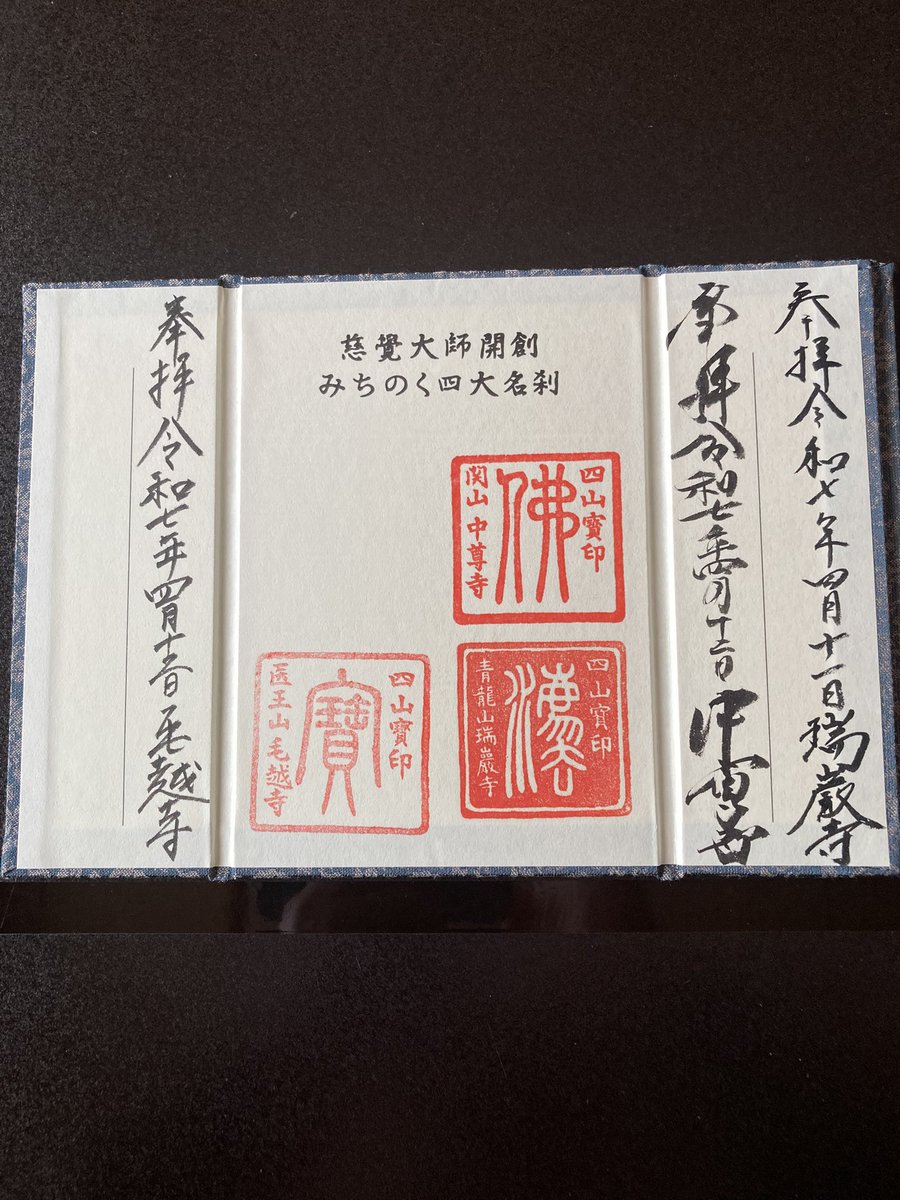 奉拝 令和七年四月十一日 瑞巌寺
奉拝 令和七年四月十二日 中尊寺
慈覺大師開創
みちのく四大名刹
四山寶印
佛
関山 中尊寺
四山寶印
灋
青龍山瑞巌寺
四山寶印
寶
医王山 毛越寺
奉拝 令和七年四月十二日 毛越寺